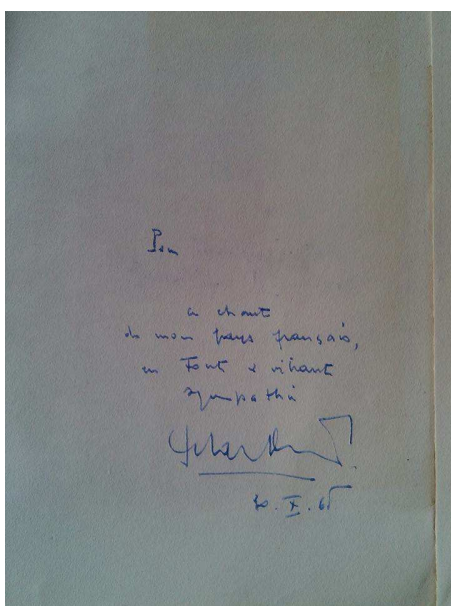 Pour
ce chant
de mon pays français,
en toute &
sympathie
30.X.65